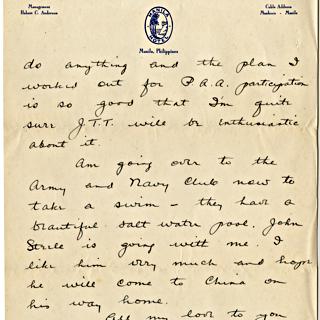 Management
Robert C. Anderson
MANILA
HOTEL
Cable Address
Manhota - Manila
Manila, Philippines
do anything and the plan I
worked out for P.A.A. participation
is so good that I'm quite
sure J.T.T. will be enthusiastic
about it.
Am going over to the
Army and Navy Club now to
take a swim - they have a
beautiful salt water pool. John
Steele is going with me. I
like him very much and hope
he will come to China on
his way home.
All my love to you